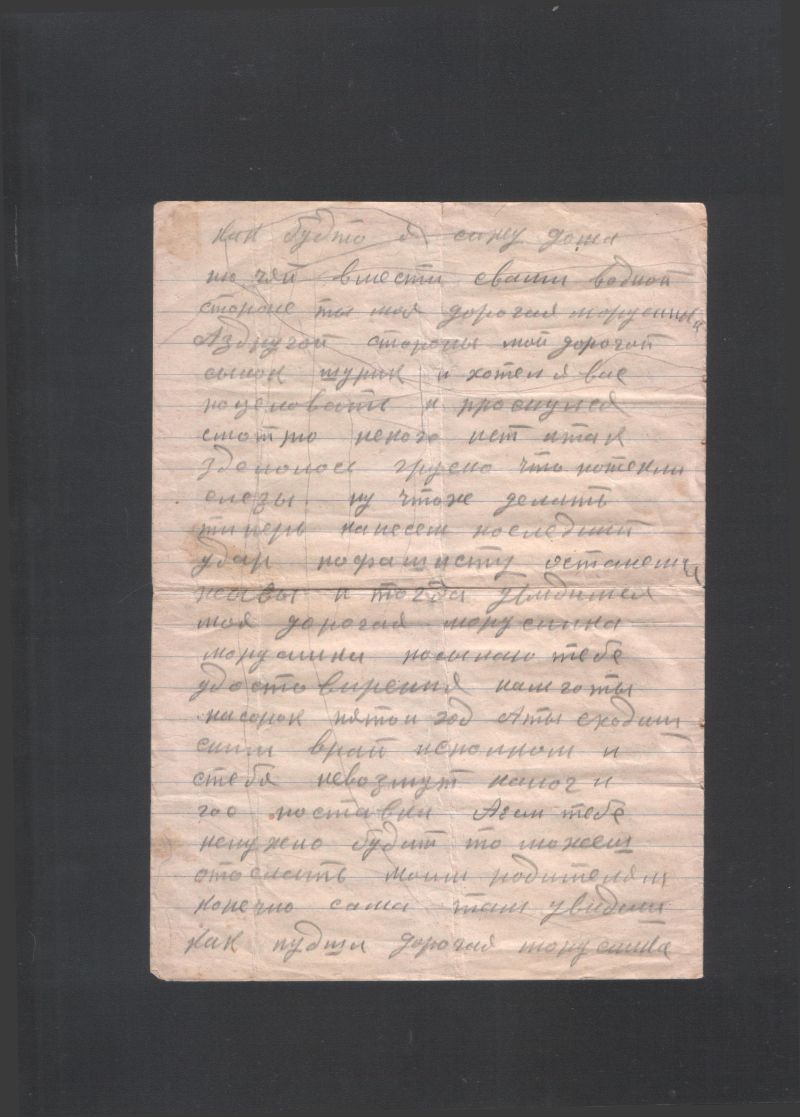 как будто я сижу дома
пю чяй вмести свами водной
стороне ты моя дорогая морусинка
Аздругой стороны мой дорогой
сынок шурик и хотел я вас
поцеловать и проснулся
смотрю некого нет итак
зделолось грусно что потекли
слезы ну чтоже делать
типерь нанесем последний
удар пофашисту останемся
жывы и тогда увидимся
моя дорогая морусинка
морусинка посылаю тебе
удостовирения
насорок пятои год Аты сходиш
сним врай исполком и
стебя невозмут налог и
гос поставки Аесли тебе
ненужно будит то можеш
отослать моим родителям
конечно сама там увидиш
как лудша дорогая морусинка